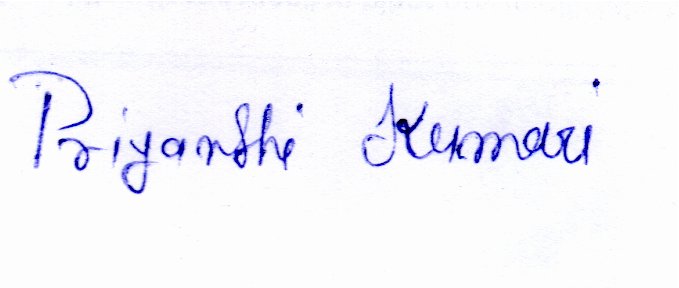 Priyanshi Kumari